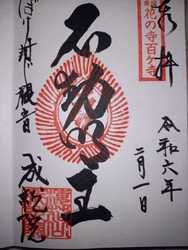 奉拝
東国花の寺百ヶ寺
令和六年
二月一日
不動明王
ぼけ封じ観音
成就院